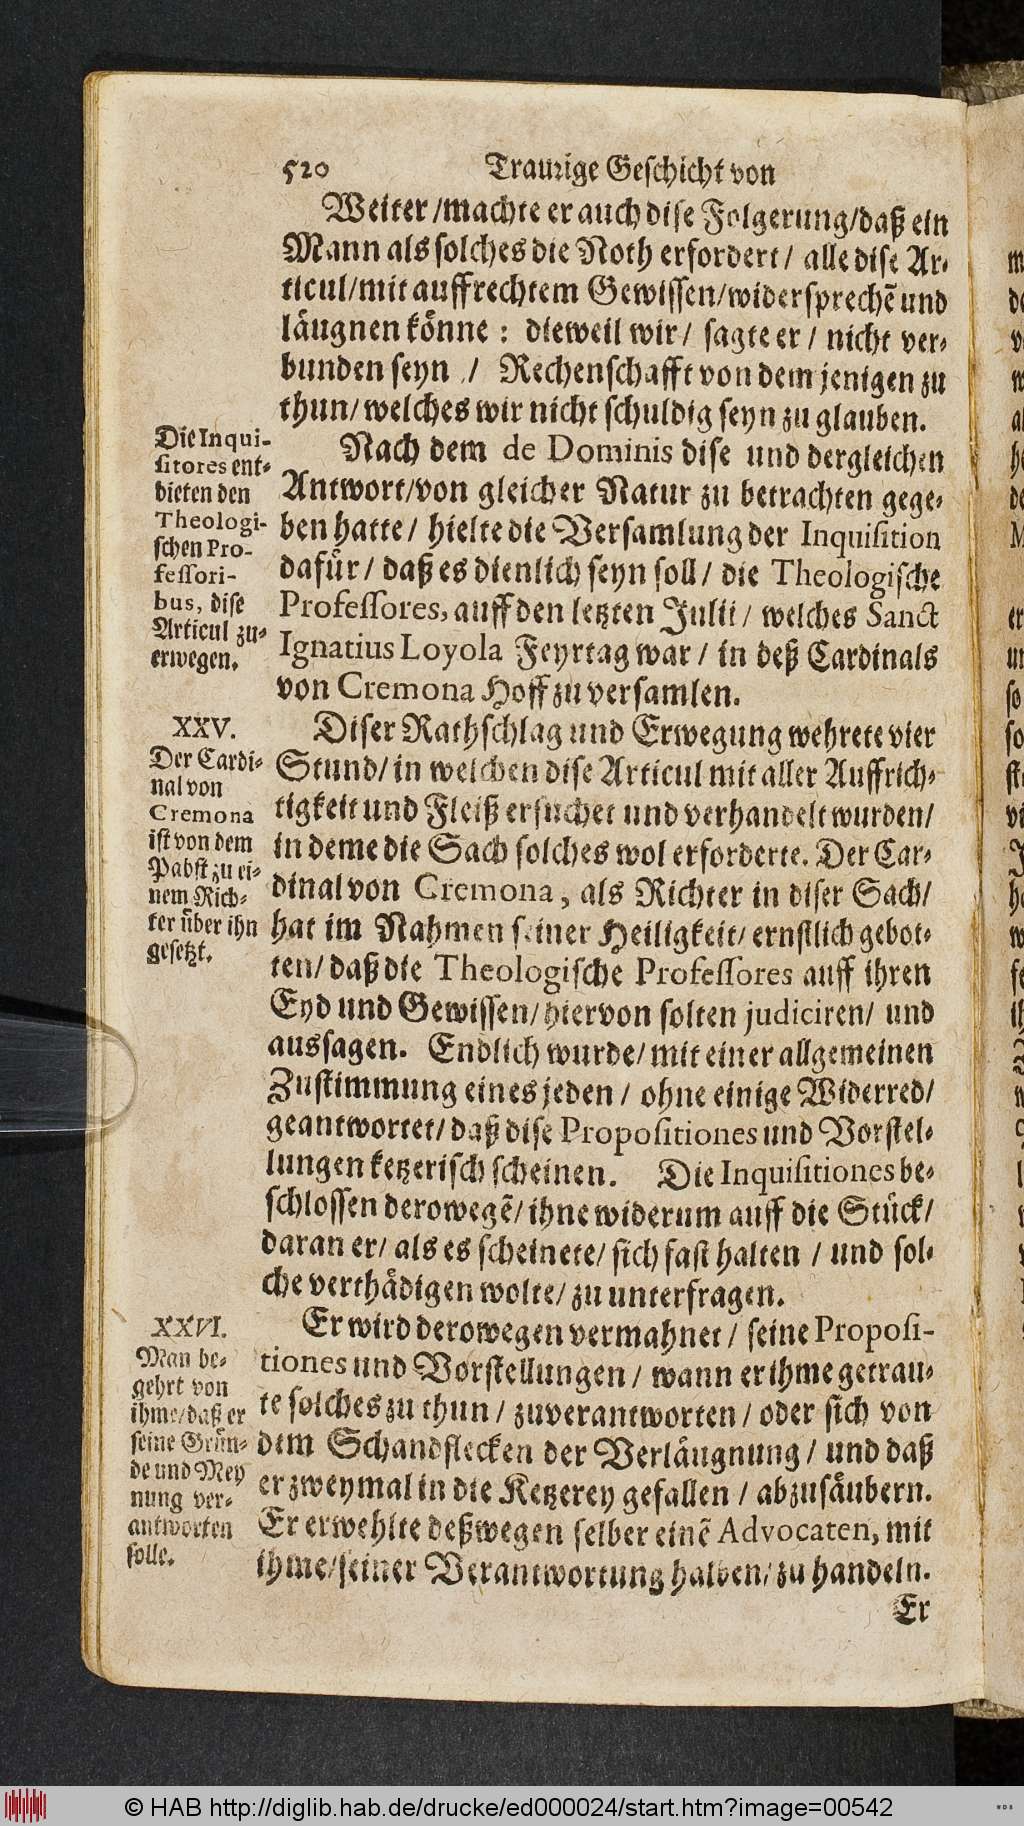 520 Traurige Geschicht von
Weiter /machte er auch dise Folgerung/daß ein
Mann als solches die Noth erfordert / alle dise Ar-
ticul/mit auffrechtem Gewissen/widersprechẽ und
läugnen könne : dieweil wir / sagte er / nicht ver-
bunden seyn / Rechenschafft von dem jenigen zu
thun/ welches wir nicht schuldig seyn zu glauben.
Die Inqui-
sitores ent-
bieten den
Theologi-
schen Pro-
fessori-
bus, dise
Articul zu-
erwegen.
Nach dem de Dominis dise und dergleichen
Antwort/von gleicher Natur zu betrachten gege-
ben hatte / hielte die Versamlung der Inquisition
dafür / daß es dienlich seyn soll / die Theologische
Professores, auff den letzten Julii / welches Sanct
Ignatius Loyola Feyrtag war / in deß Cardinals
von Cremona Hoff zu versamlen.
XXV.
Der Cardi-
nal von
Cremona
ist von dem
Pabst zu ei-
nem Rich-
ter über ihn
gesetzt.
Diser Rathschlag und Erwegung wehrete vier
Stund/ in welchen dise Articul mit aller Auffrich-
tigkeit und Fleiß ersuchet und verhandelt wurden/
in deme die Sach solches wol erforderte. Der Car-
dinal von Cremona, als Richter in diser Sach/
hat im Nahmen seiner Heiligkeit/ ernstlich gebot-
ten/ daß die Theologische Professores auff ihren
Eyd und Gewissen/ hiervon solten judiciren/ und
aussagen. Endlich wurde/ mit einer allgemeinen
Zustimmung eines jeden / ohne einige Widerred/
geantwortet/ daß dise Propositiones und Vorstel-
lungen ketzerisch scheinen. Die Inquisitiones be-
schlossen derowegẽ/ ihne widerum auff die Stück/
daran er/ als es scheinete/ sich fast halten / und sol-
che verthädigen wolte/ zu unterfragen.
XXVI.
Man be-
gehrt von
ihme/daß er
seine Grün-
de und Mey
nung ver-
antworten
solle.
Er wird derowegen vermahnet / seine Proposi-
tiones und Vorstellungen / wann er ihme getrau-
te solches zu thun / zuverantworten / oder sich von
dem Schandflecken der Verläugnung / und daß
er zweymal in die Ketzerey gefallen / abzusäubern.
Er erwehlte deßwegen selber einẽ Advocaten, mit
ihme/seiner Verantwortung halben/ zu handeln.
Er
© HAB http://diglib.hab.de/drucke/ed000024/start.htm?image=00542